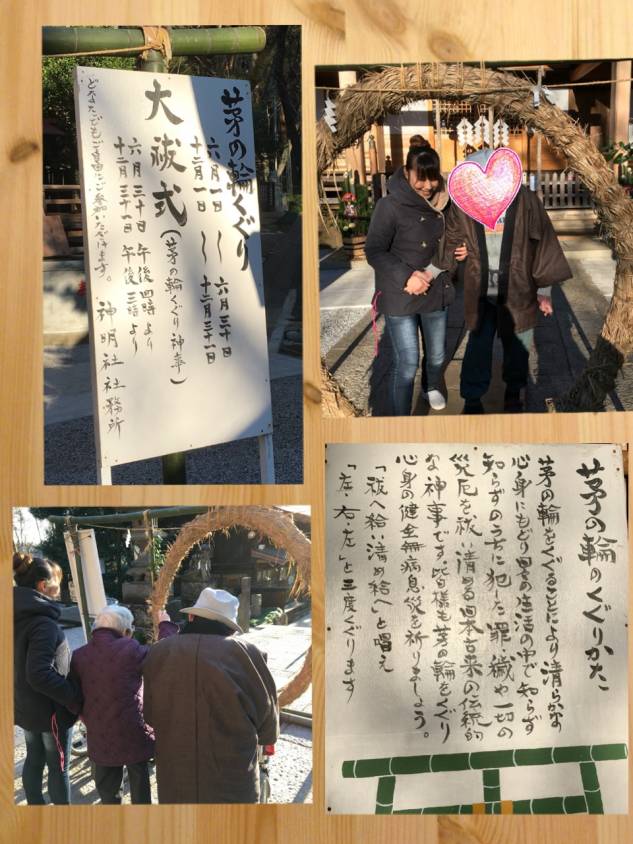 茅の輪くぐり
六月一日〜六月三十日
十二月一日〜十二月三十一日
大祓式(茅の輪くぐり神事)
六月三十日 午後四時より
十二月三十一日 午後三時より
どなたでもご自由にご参加いただけます。
神明社社務所
茅の輪のくぐりかた
茅の輪をくぐることにより清らかな
心身にもどり日々の生活の中で知らず
知らずのうちに犯した罪・穢や一切の
災厄を祓い清める日本古来の伝統的
な神事です。皆様も茅の輪をくぐり
心身の健全無病息災を祈りましょう。
「祓へ給い清め給へ」と唱え
「左・右・左」と三度くぐります